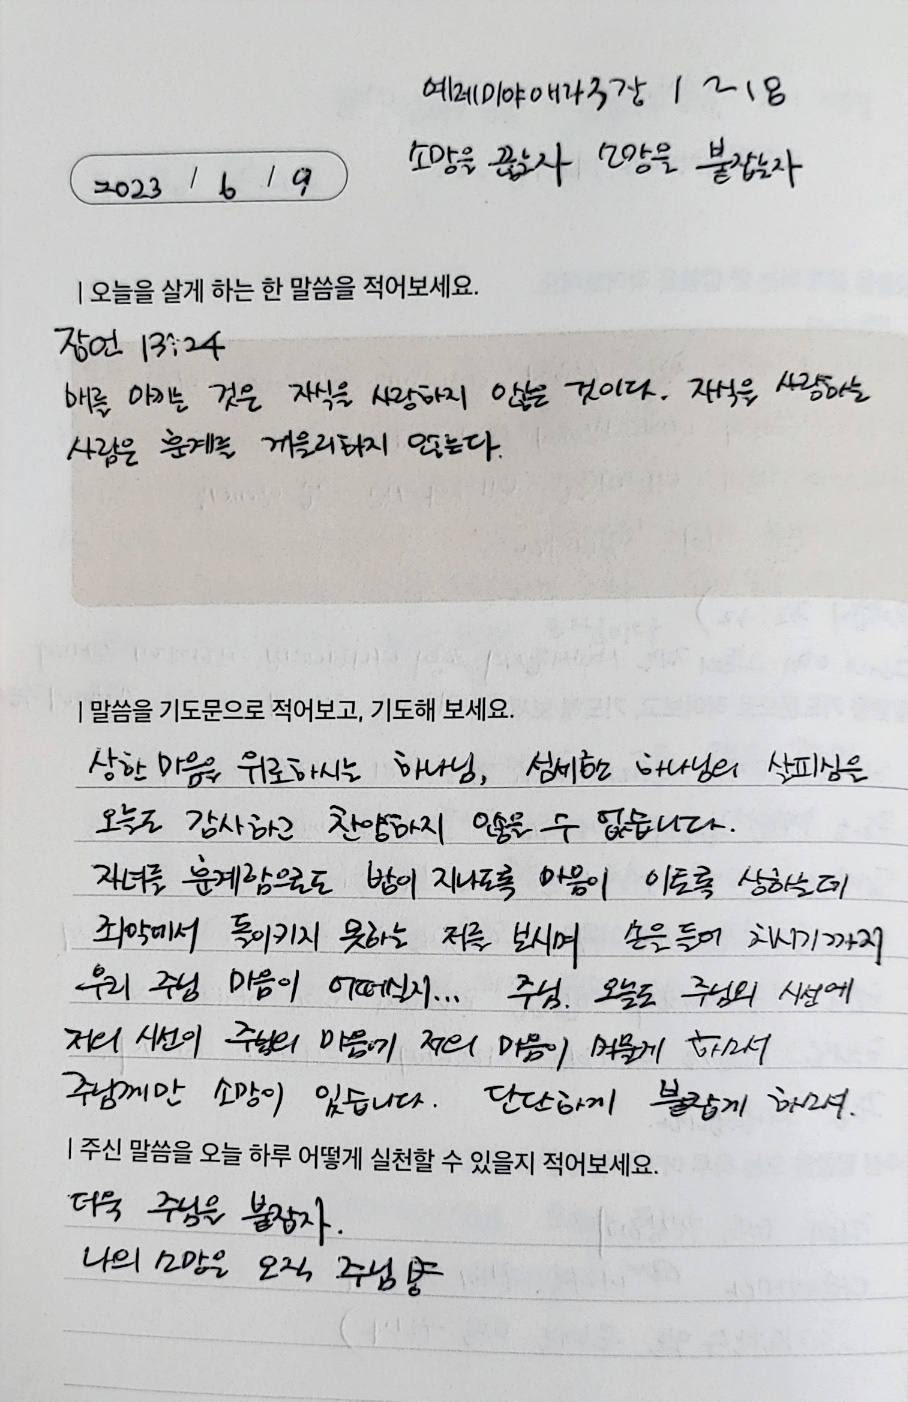 예레미야애가 3장 1~18
소망을 끊는자 소망을 붙잡는자
2023 / 6 / 9
| 오늘을 살게 하는 한 말씀을 적어보세요.
잠언 13:24
매를 아끼는 것은 자식을 사랑하지 않는 것이다. 자식을 사랑하는
사람은 훈계를 게을리하지 않는다.
| 말씀을 기도문으로 적어보고, 기도해 보세요.
상한 마음을 위로하시는 하나님, 섬세한 하나님의 살피심은
오늘도 감사하고 찬양하지 않을 수 없습니다.
자녀를 훈계함으로도 밤이 지나도록 마음이 이토록 상하는데
죄악에서 돌이키지 못하는 저를 보시며 손을 들어 치시기까지
우리 주님 마음이 어떠실지... 주님. 오늘도 주님의 시선에
저의 시선이 주님의 마음에 저의 마음이 머물게 하소서
주님께만 소망이 있습니다. 단단하게 붙잡게 하소서.
| 주신 말씀을 오늘 하루 어떻게 실천할 수 있을지 적어보세요.
더욱 주님을 붙잡자.
나의 소망은 오직 주님뿐